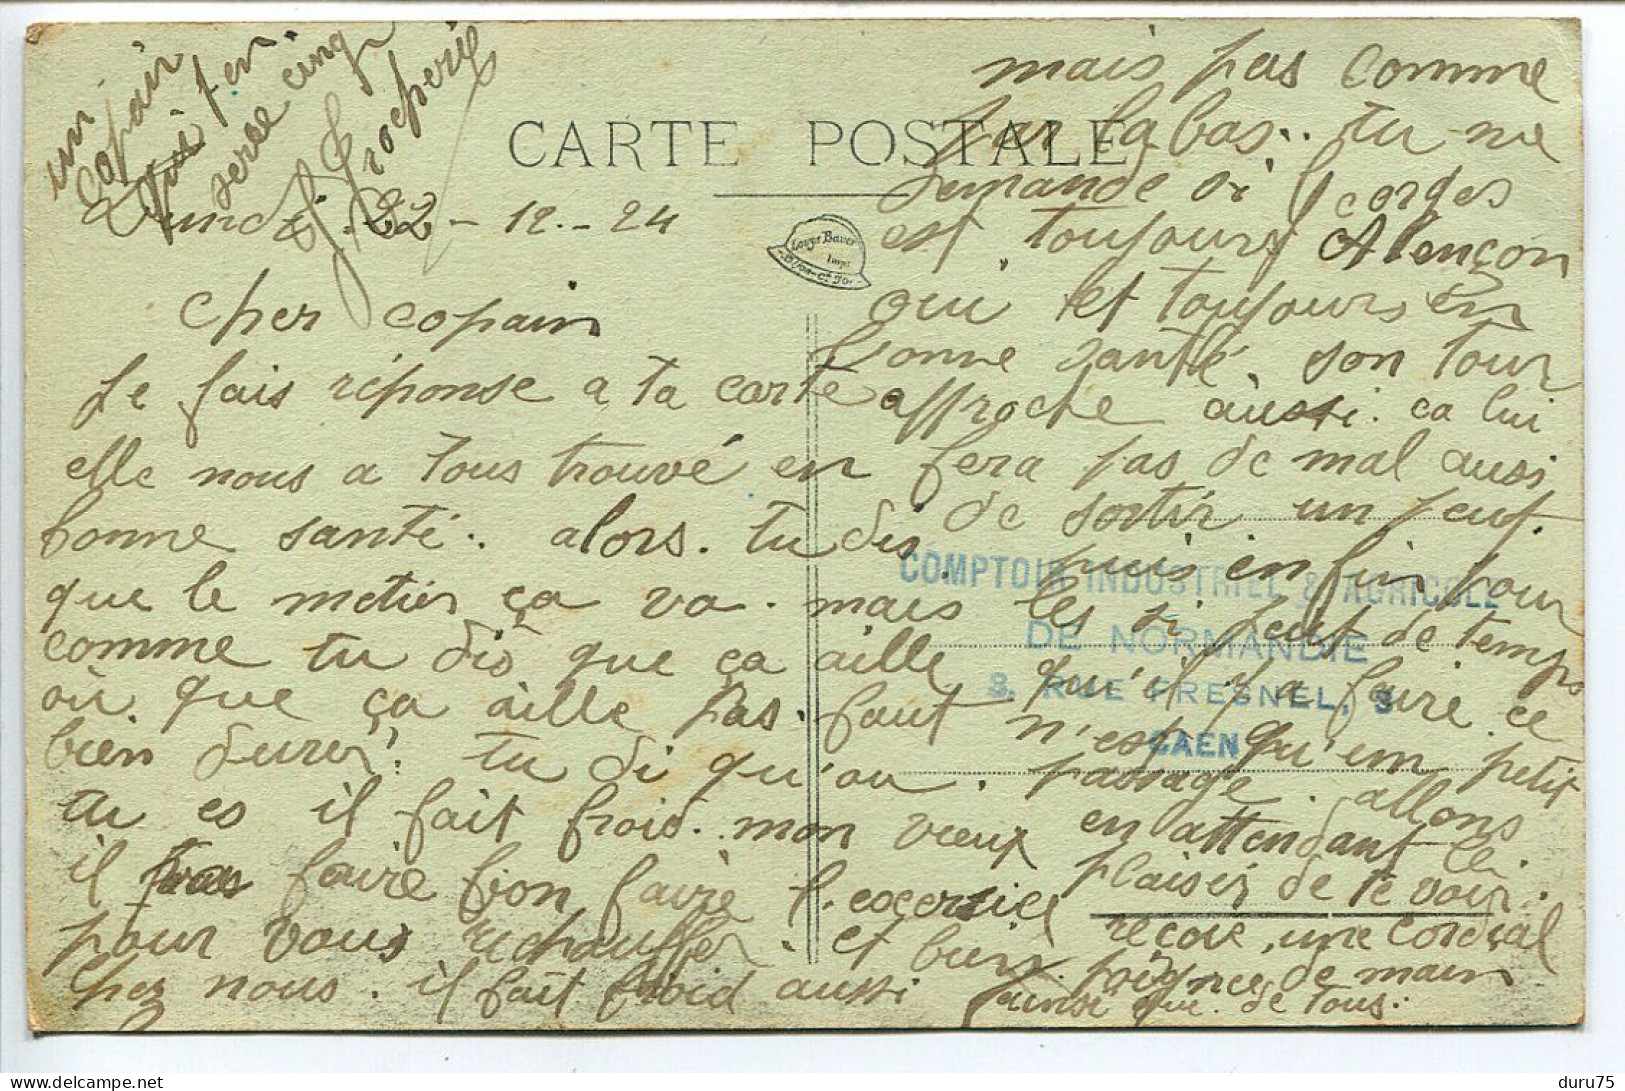 un
copain
qui t'en
serre cinq
CARTE POSTALE
Lundi 22-12.-24
cher copain
Je fais réponse a ta carte
elle nous a tous trouvé en
bonne santé.. alors. tu dis.
que le metier ça va. mais
comme tu dis que ça aille
où que ça aille pas. faut
bien durer? tu di qu'ou
tu es il fait froid. mon vieux
il faire bon faire l'exercice
pour vous rechauffer. et bien
chez nous. il fait froid aussi
mais pas comme
par labas.. tu me
demande si Georges
est toujours Alençon
oui et toujours en
bonne santé. son tour
approche aussi. ca lui
fera pas de mal aussi
de sortir un peut.
puis enfin pour
les si peut de temps
qu'il y a faire ce
n'est qu'un petit
passage. allons
en attendant le
plaisir de te voir.
reçoie, une cordial
poignée de main
ainsi que de tous.
COMPTOIR INDUSTRIEL & AGRICOLE
DE NORMANDIE
8, RUE FRESNEL, 8
CAEN
duru75